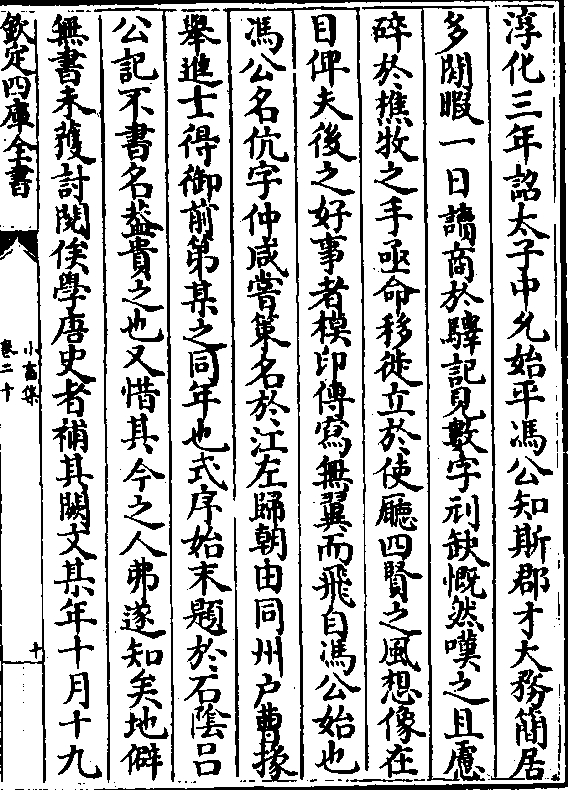 淳化三年詔太子中允始平馮公知斯郡才大務簡居
多閒暇一日讀商於驛記見數字刓缺慨然嘆之且慮
碎於樵牧之手亟命移徙立於使廳四賢之風想像在
目仰夫後之好事者模印傳寫無翼而飛自馮公始也
馮公名伉字仲咸嘗策名於江左歸朝由同州户曹掾
舉進士得御前第某之同年也式序始末題於石陰吕
公記不書名葢貴之也又惜其今之人弗遂知矣地僻
無書未獲討閱俟學唐史者補其闕文某年十月十九
欽定四庫全書
小畜集
卷二十
十